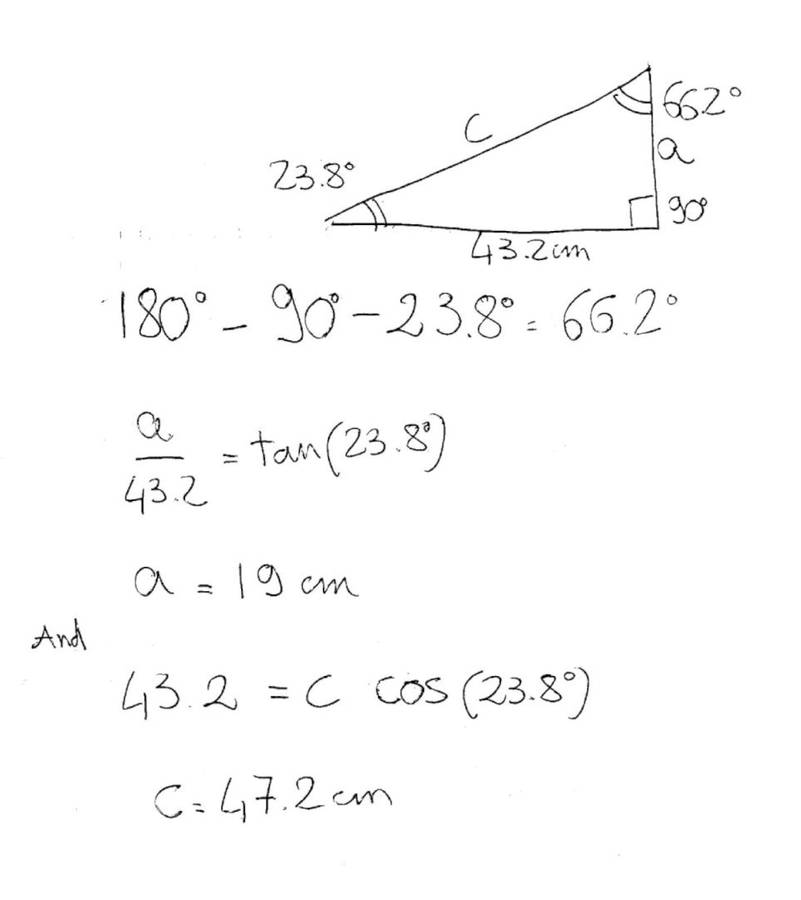 C
66.2°
a
23.8°
90°
43.2cm
180° - 90° - 23.8° = 66.2°
a/43.2 = tan(23.8°)
a = 19 cm
And
43.2 = C cos(23.8°)
C = 47.2 cm